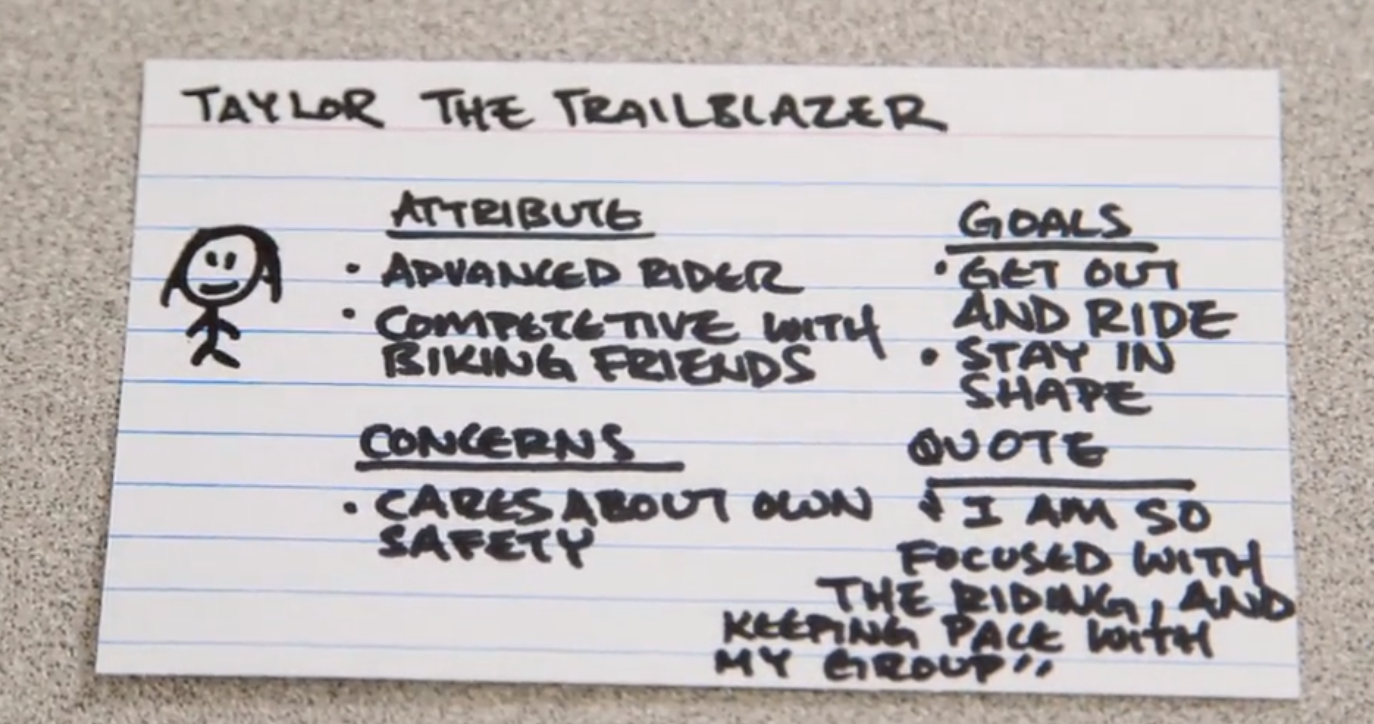 TAYLOR THE TRAILBLAZER
ATTRIBUTE
• ADVANCED RIDER
• COMPETETIVE WITH
BIKING FRIENDS
GOALS
• GET OUT
AND RIDE
• STAY IN
SHAPE
CONCERNS
• CARES ABOUT OWN
SAFETY
QUOTE
" I AM SO
FOCUSED WITH
THE RIDING, AND
KEEPING PACE WITH
MY GROUP"